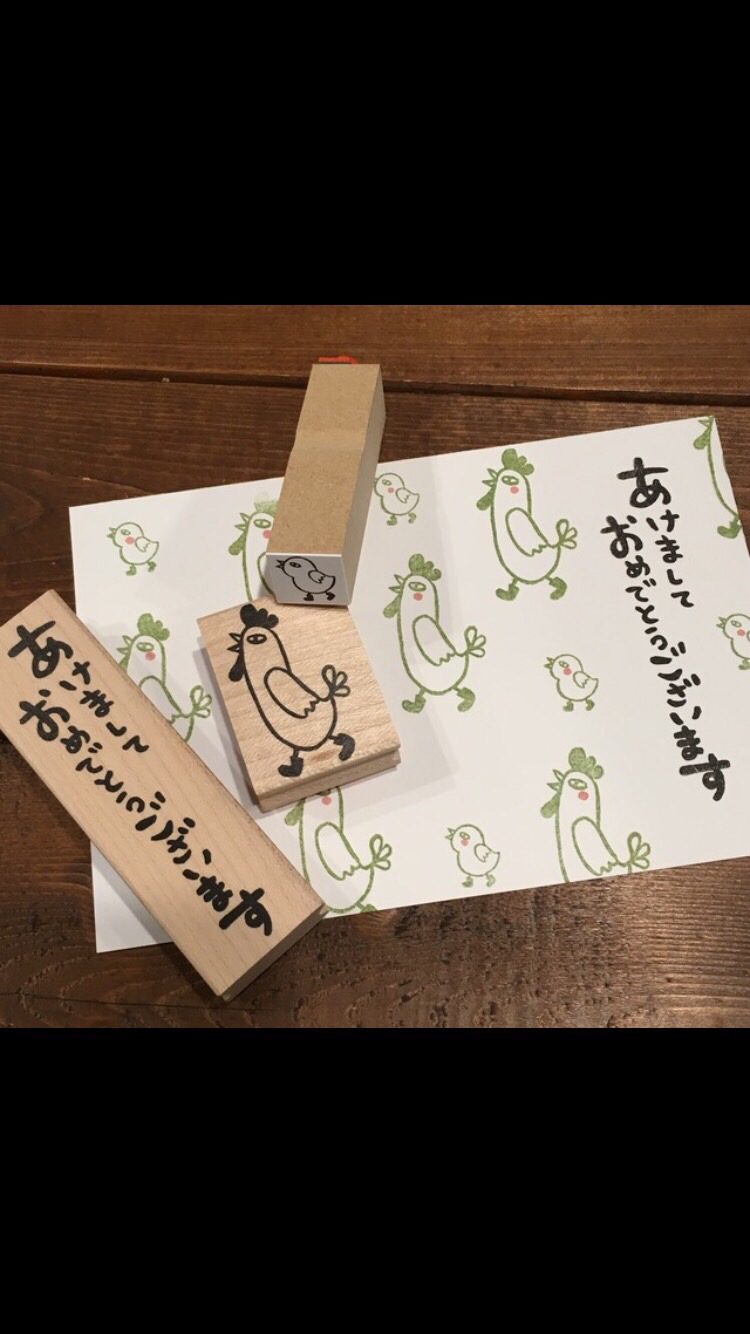 あけまして
おめでとうございます
あけまして
おめでとうございます